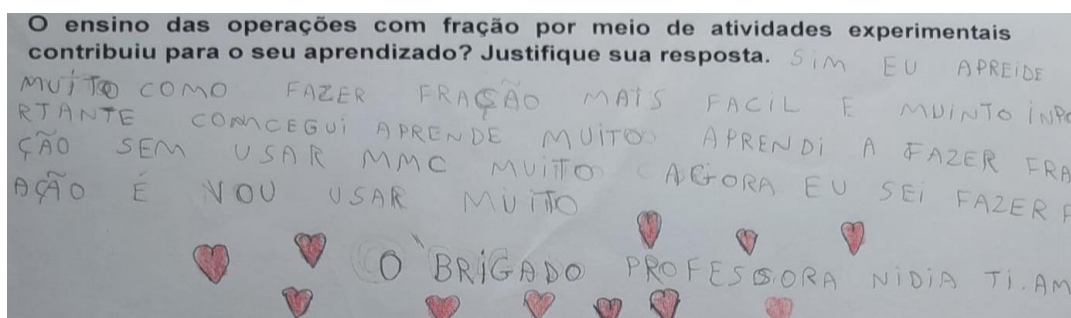 O ensino das operações com fração por meio de atividades experimentais
contribuiu para o seu aprendizado? Justifique sua resposta. SiM EU APREIDE
MUiTO COMO FAZER FRAÇÃO MAiS FACiL E MUiNTO iNPO
RTANTE COMCEGUi APRENDE MUiTO APRENDi A FAZER FRA
ÇÃO SEM USAR MMC MUiTO AGORA EU SEi FAZER F
AÇÃO É VOU USAR MUiTO
O BRiGADO PROFESSORA NiDiA Ti.AM